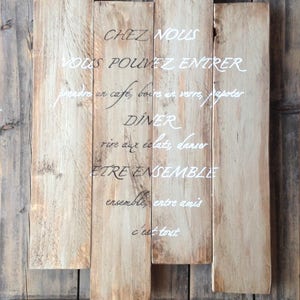 CHEZ NOUS
VOUS POUVEZ ENTRER
prendre un café, boire un verre, papoter
DÎNER
rire aux eclats, danser
ETRE ENSEMBLE
ensemble, entre amis
c'est tout